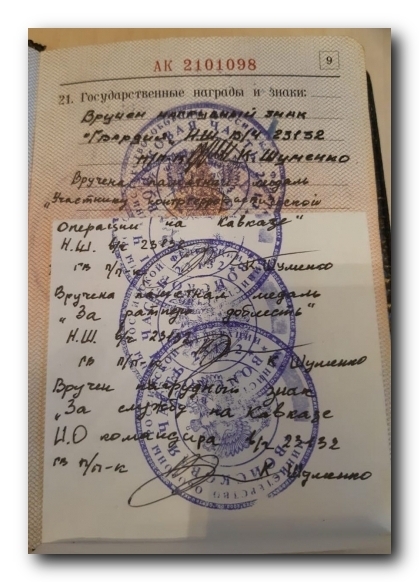 АК 2101098
9
21. Государственные награды и знаки:
Вручен нагрудный знак
"Гвардия" Н.Ш. В/Ч 23132
п/п-к К. Шуменко
Вручена памятная медаль
„Участнику контртеррористической
Операции на Кавказе"
Н.Ш. в/ч 23132
гв п/п-к К. Шуменко
Вручена памятная медаль
„За ратную доблесть"
Н.Ш. в/ч 23132
гв п/п-к К Шуменко
Вручен нагрудный знак
„За службу на Кавказе
И.О командира в/ч 23132
гв п/п-к К. Шуменко